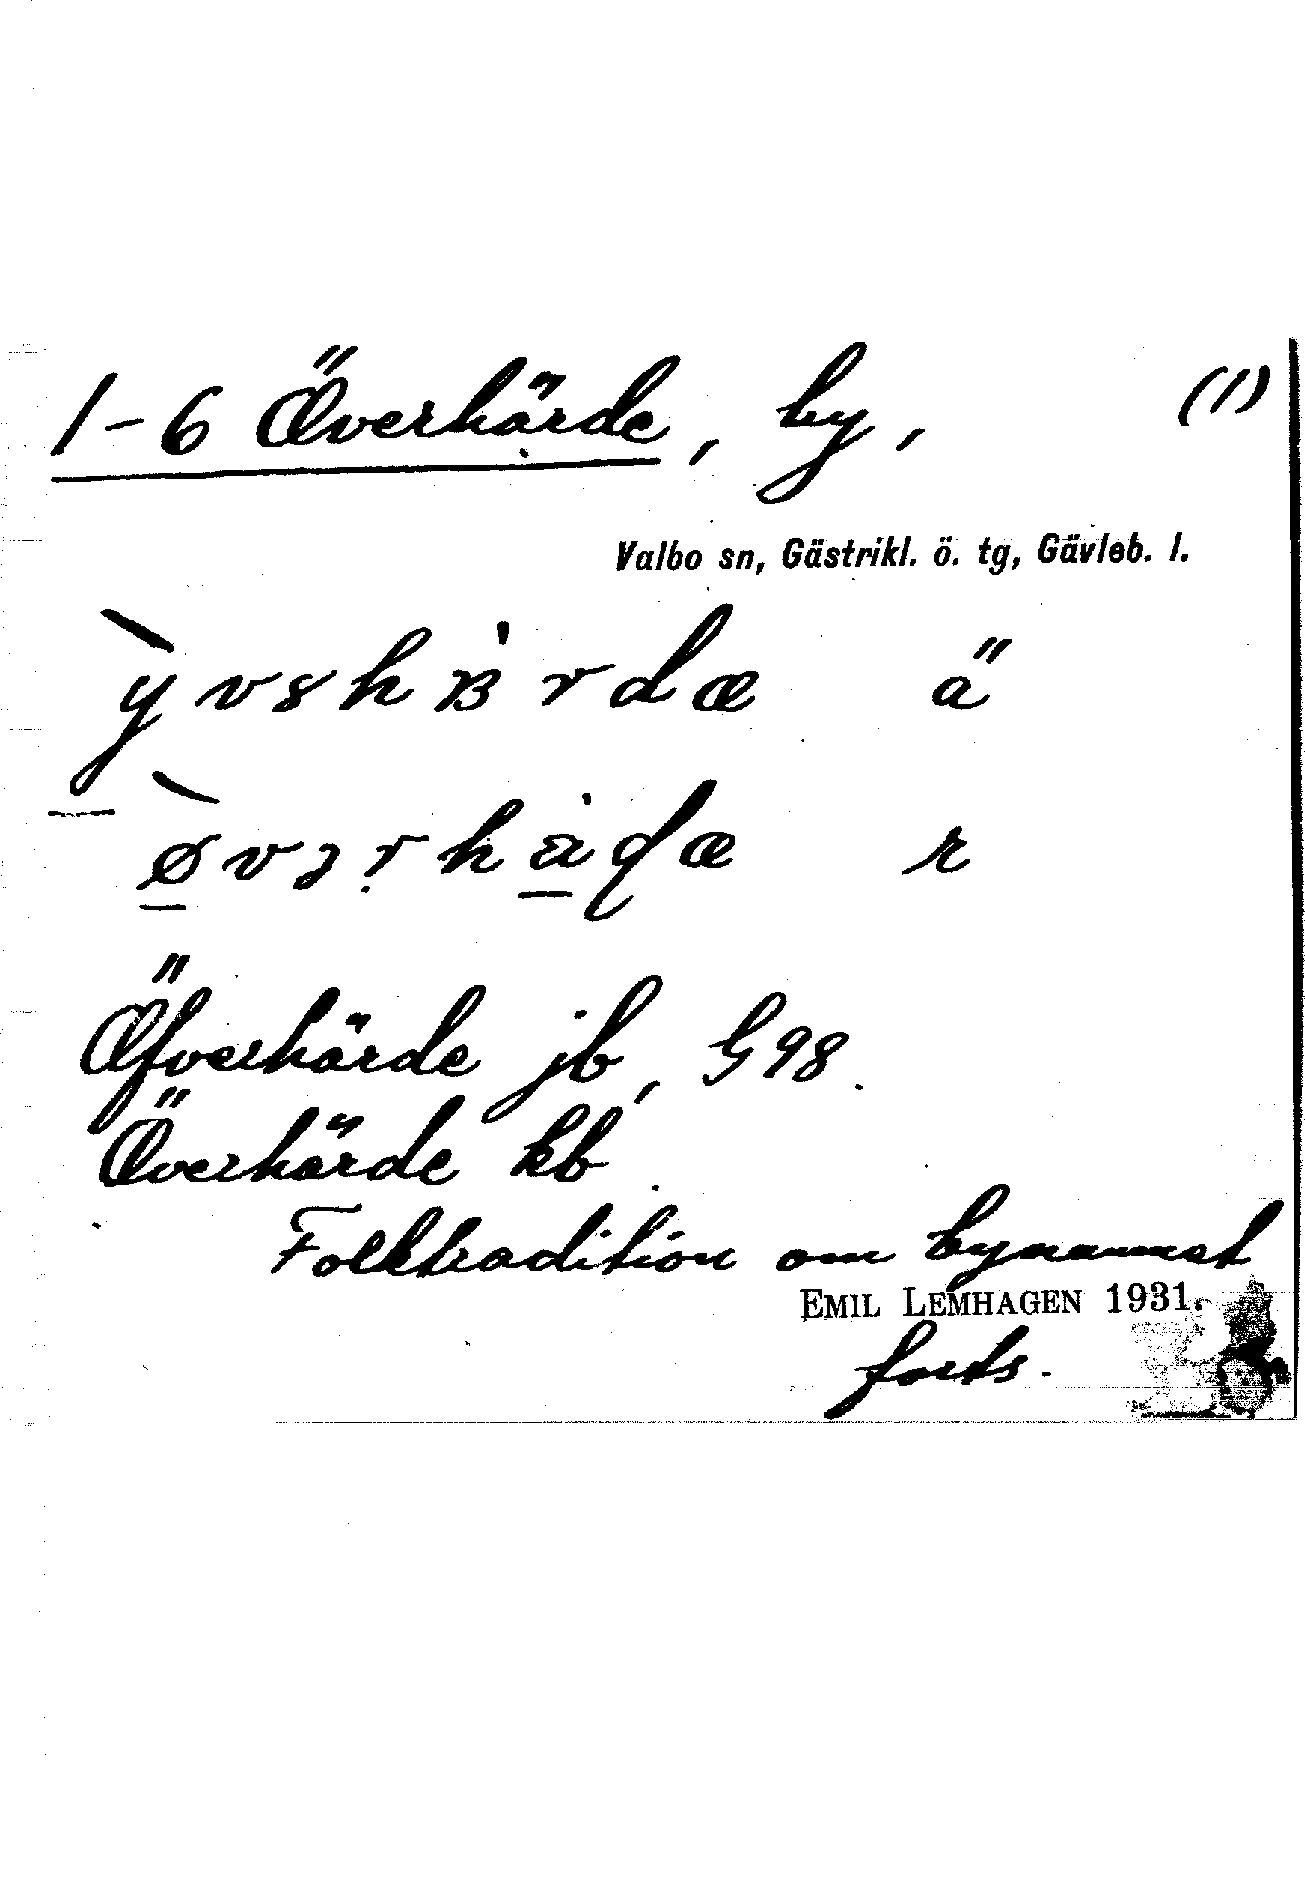 1-6 Överhärde, by, (1)
Valbo sn, Gästrikl. ö. tg, Gävleb. l.
ä
r
Öfverhärde jb, G98.
Överhärde kb.
Folktradition om bynamnet
EMIL LEMHAGEN 1931.
forts.